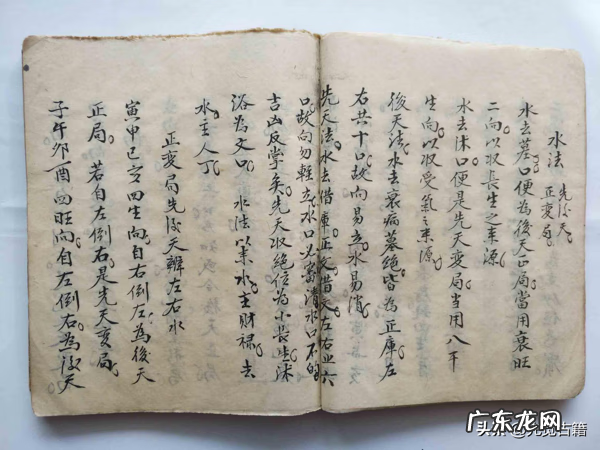 水法 先後天正變局
水去墓口便為後天正局當用衰旺
二向以收長生之来源
水去沐口便是先天變局當用八干
生向以收受氣之来源
後天法水去衰病墓絕皆為正庫左
右共十口故向易立水易消
先天法水去借庫正文借文左右止六
口故向勿輕立水口必審清水口不的
吉凶反掌矣先天收絕位為小長生沐
浴為文口 水法以来水主財祿去
水主人丁
正變局先後天辨左右水
寅申巳亥四生向自右倒左為後天
正局若自左倒右是先天變局
子午卯酉四旺向自左倒右為後天
广东龙网
头条@九觉古籍